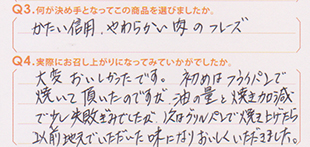 Q3.何が決め手となってこの商品を選びましたか。
かたい信用、やわらかい肉のフレーズ
Q4.実際にお召し上がりになってみていかがでしたか。
大変おいしかったです。初めはフライパンで
焼いて頂いたのですが、油の量と焼き加減
で少し失敗ぎみでしたが、次はグリルパンで焼き上げたら
以前地元でいただいた味になりおいしくいただきました。